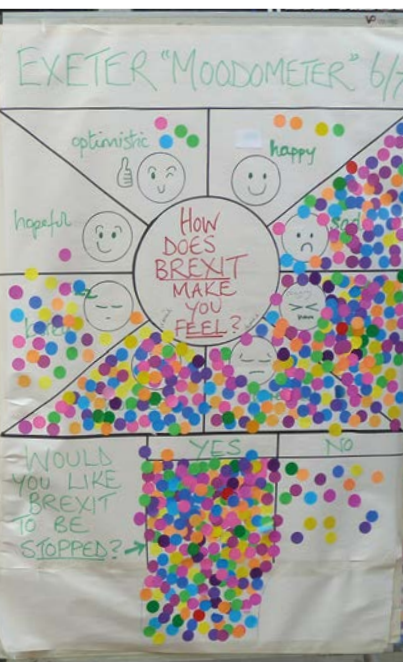 EXETER "MOODOMETER" 6/7
optimistic
happy
hopeful
sad
HOW
DOES
BREXIT
MAKE
YOU
FEEL?
YES
NO
WOULD
YOU LIKE
BREXIT
TO BE
STOPPED?